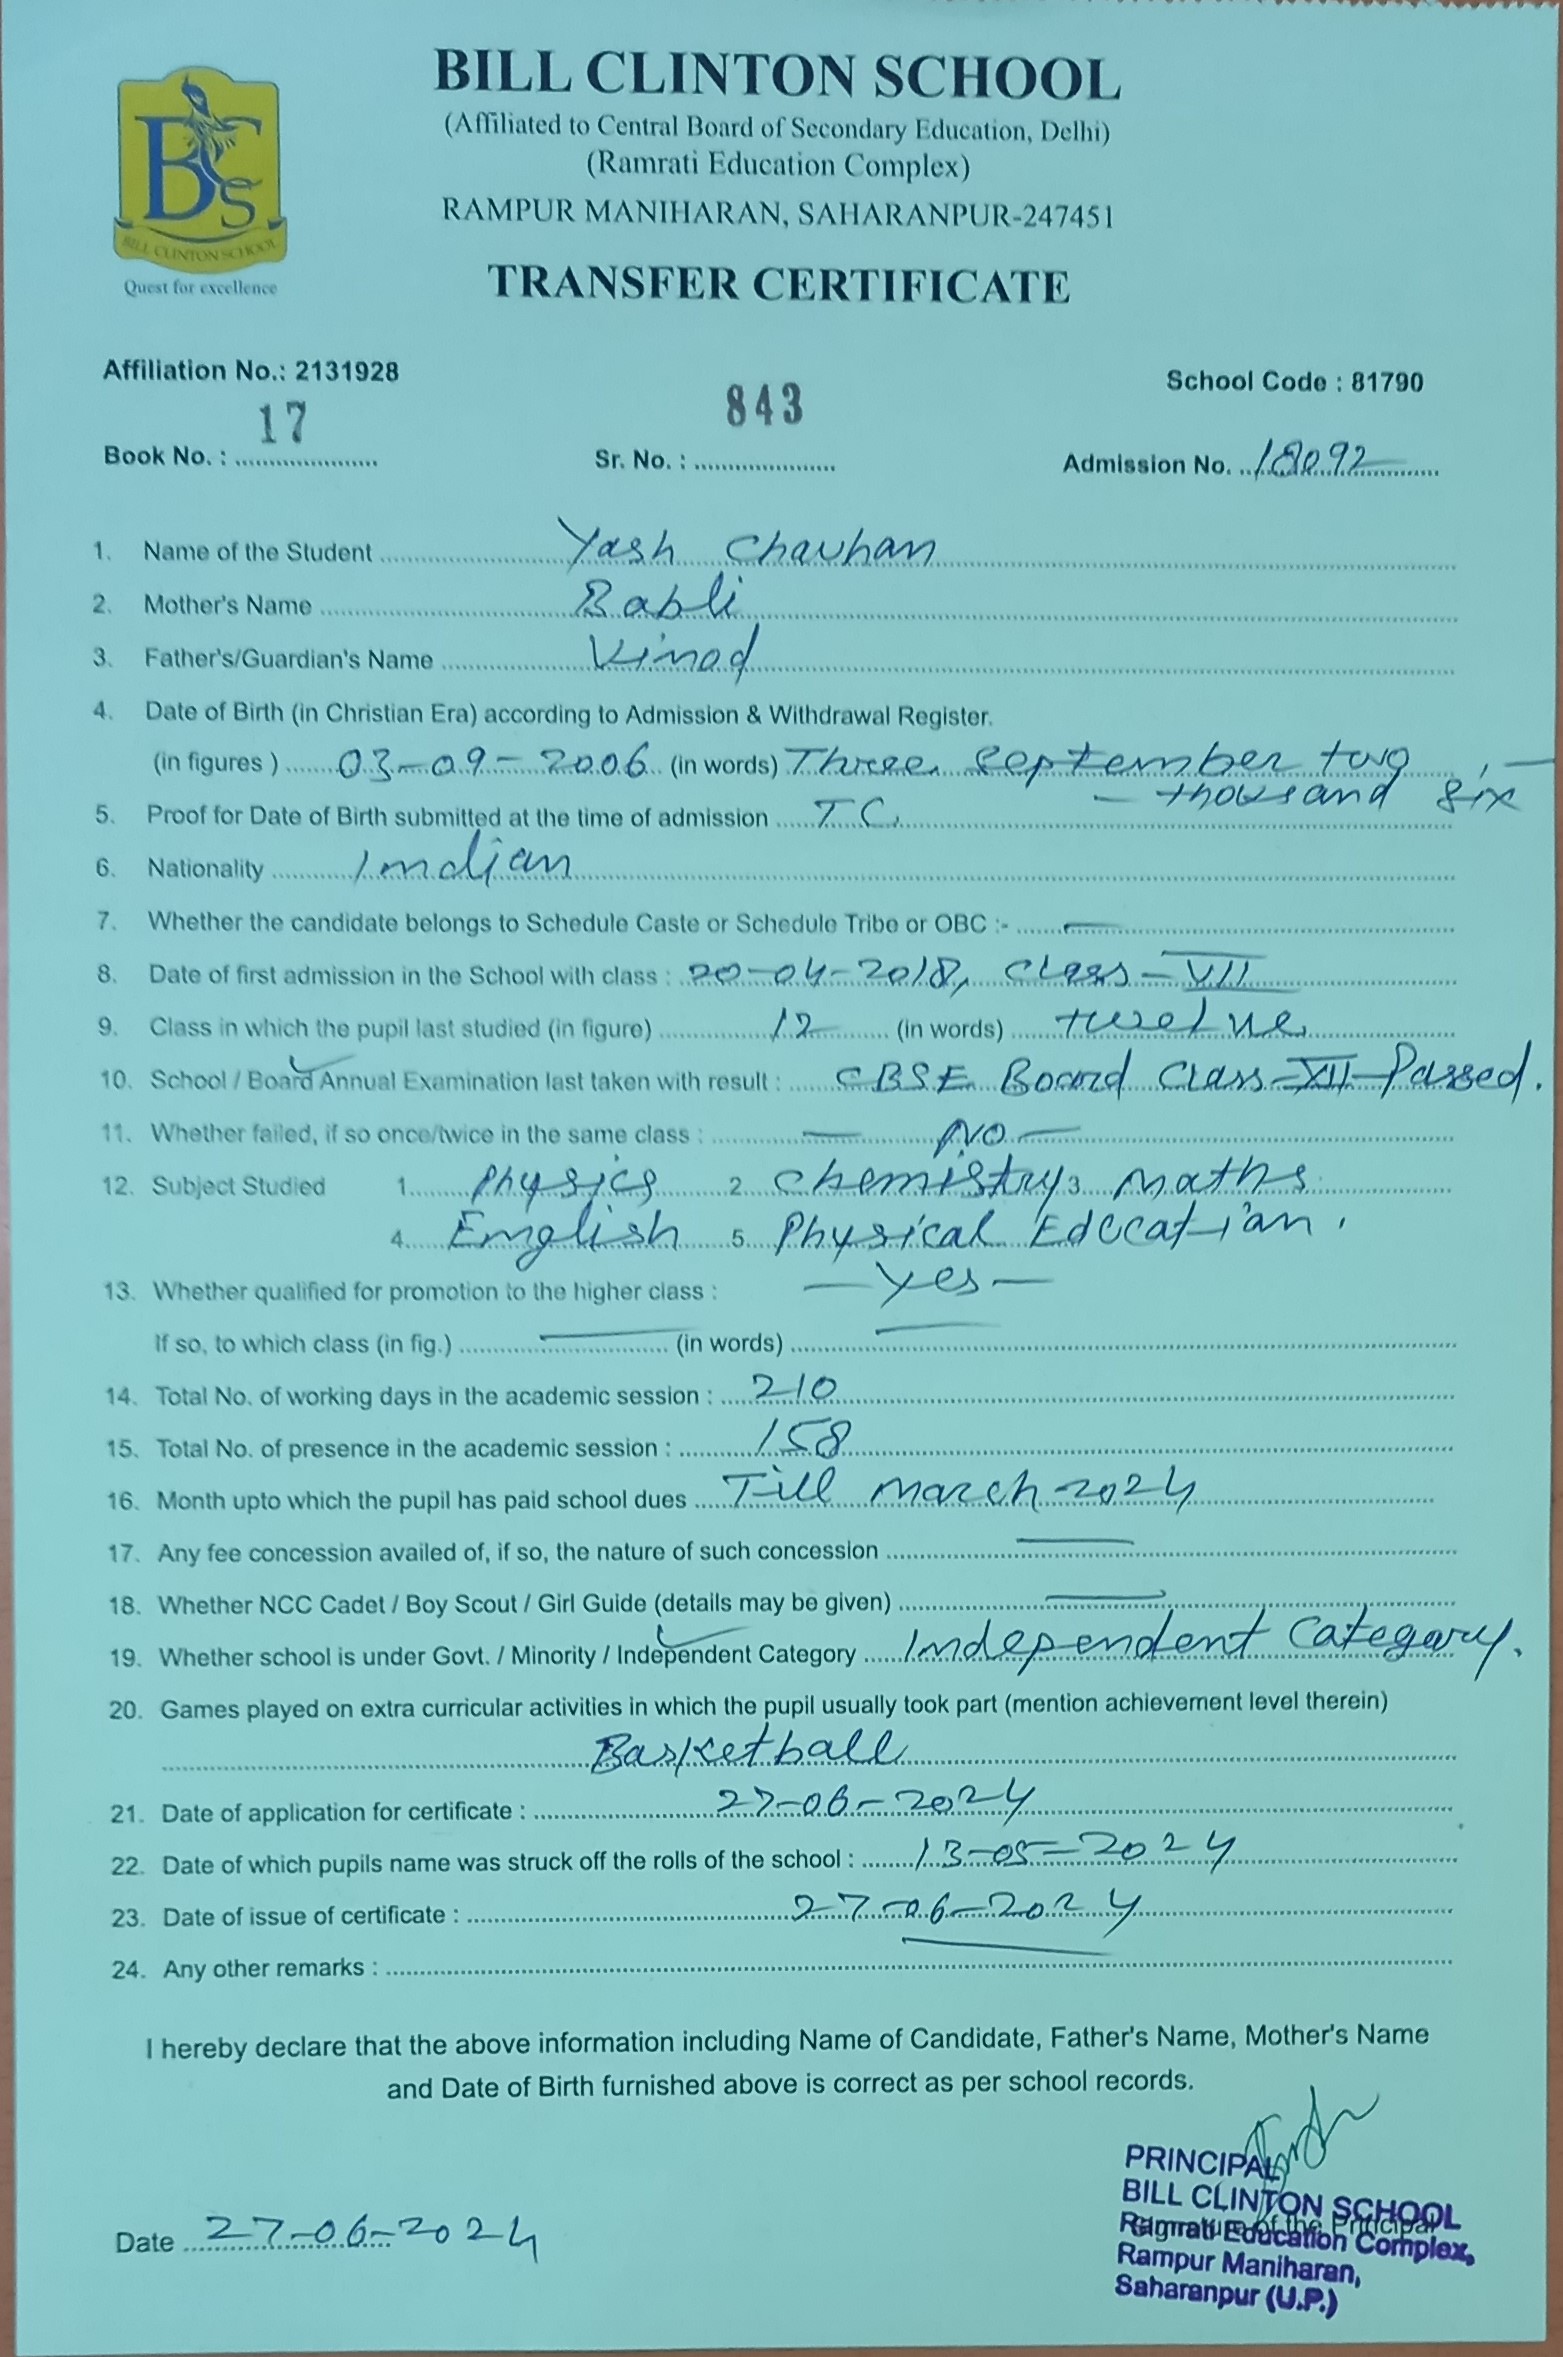 BILL CLINTON SCHOOL
(Affiliated to Central Board of Secondary Education, Delhi)
(Ramrati Education Complex)
RAMPUR MANIHARAN, SAHARANPUR-247451
BCS
BILL CLINTON SCHOOL
Quest for excellence
TRANSFER CERTIFICATE
Affiliation No.: 2131928 School Code : 81790
Book No. : 17 Sr. No. : 843 Admission No. 18092
1. Name of the Student Yash Chauhan
2. Mother's Name Babli
3. Father's/Guardian's Name Vinod
4. Date of Birth (in Christian Era) according to Admission & Withdrawal Register.
(in figures ) 03-09-2006 (in words) Three September two
- thousand six
5. Proof for Date of Birth submitted at the time of admission TC
6. Nationality Indian
7. Whether the candidate belongs to Schedule Caste or Schedule Tribe or OBC :- —
8. Date of first admission in the School with class : 20-04-2018, Class-VII
9. Class in which the pupil last studied (in figure) 12 (in words) twelve
10. School / Board Annual Examination last taken with result : CBSE Board Class-XII-Passed.
11. Whether failed, if so once/twice in the same class : — NO —
12. Subject Studied 1. Physics 2. Chemistry 3. Maths
4. English 5. Physical Education.
13. Whether qualified for promotion to the higher class : — Yes —
If so, to which class (in fig.) — (in words) —
14. Total No. of working days in the academic session : 210
15. Total No. of presence in the academic session : 158
16. Month upto which the pupil has paid school dues Till March-2024
17. Any fee concession availed of, if so, the nature of such concession —
18. Whether NCC Cadet / Boy Scout / Girl Guide (details may be given) —
19. Whether school is under Govt. / Minority / Independent Category Independent Category.
20. Games played on extra curricular activities in which the pupil usually took part (mention achievement level therein)
Basketball
21. Date of application for certificate : 27-06-2024
22. Date of which pupils name was struck off the rolls of the school : 13-05-2024
23. Date of issue of certificate : 27-06-2024
24. Any other remarks : —
I hereby declare that the above information including Name of Candidate, Father's Name, Mother's Name
and Date of Birth furnished above is correct as per school records.
PRINCIPAL
BILL CLINTON SCHOOL
Signature of the Principal
Ramrati Education Complex,
Rampur Maniharan,
Saharanpur (U.P.)
Date 27-06-2024